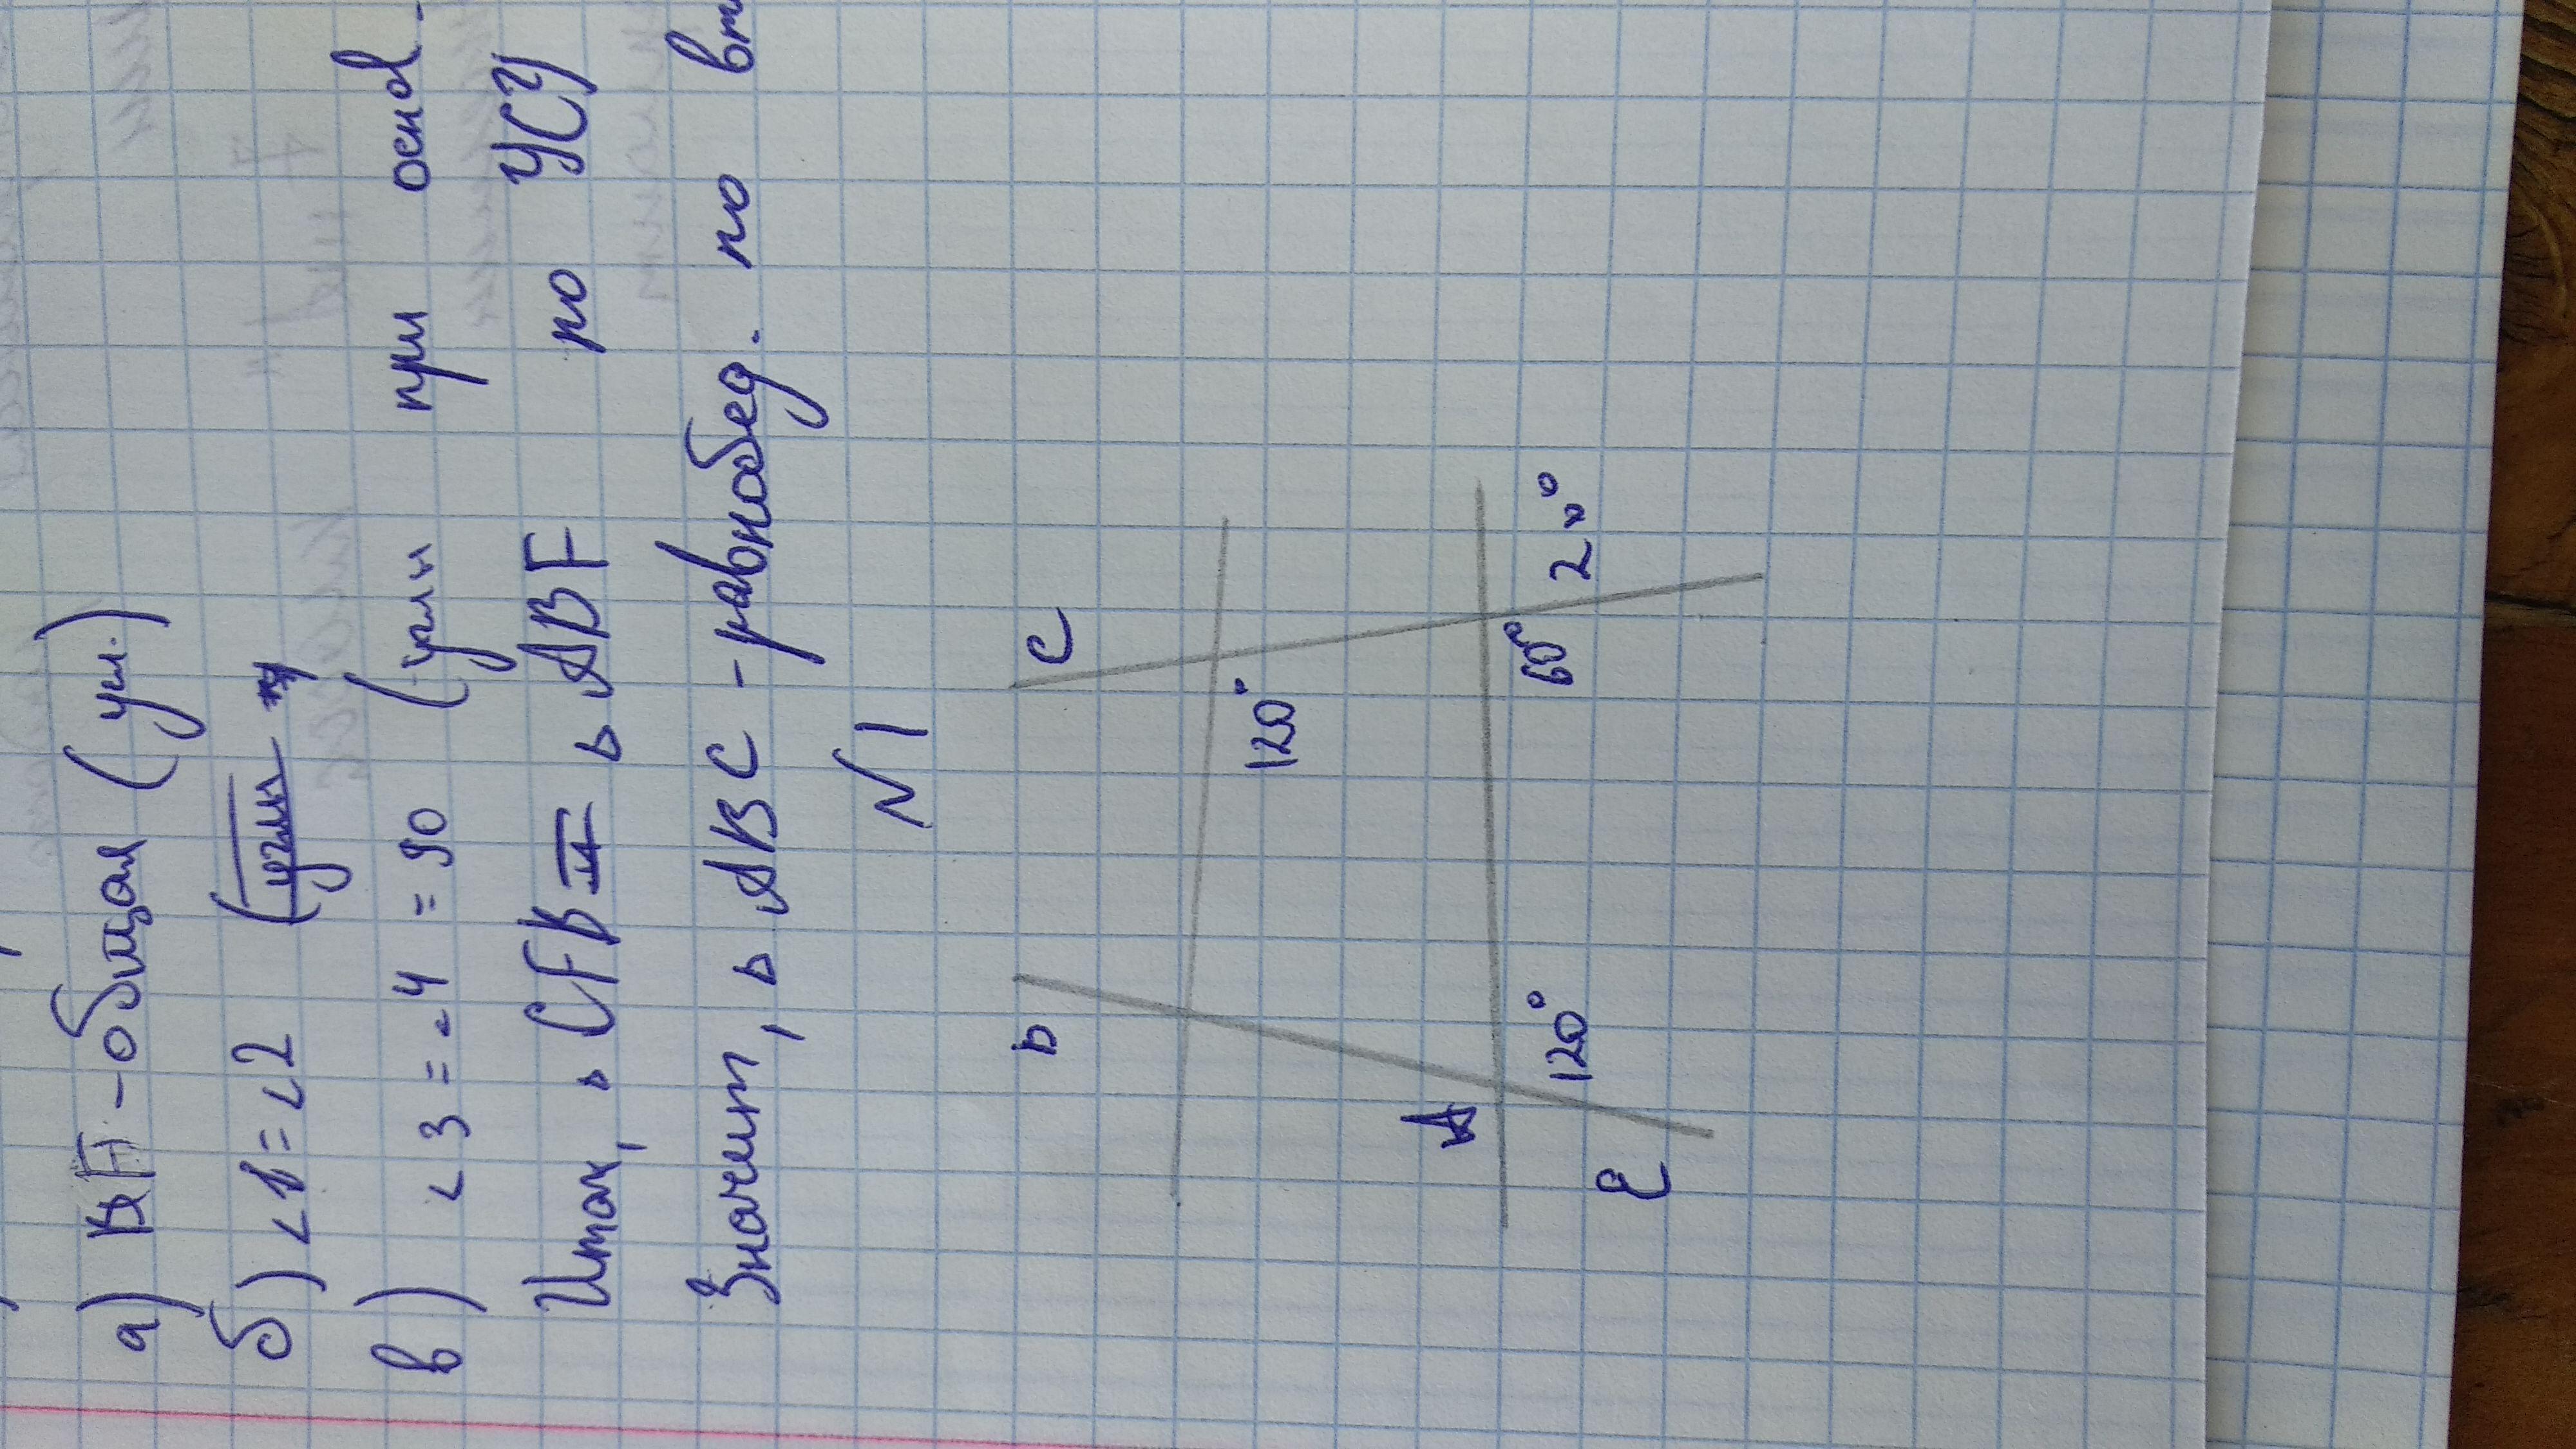 а) BF - общая (ус.)
б) ∠1 = ∠2 (углы
в) ∠3 = ∠4 = 90 (углы при основ.
Итак, ▵ CFB = ▵ ABF по УСУ
Значит, ▵ ABC - равнобед. по
N 1
b C
120°
A
120° 60° 2x°
E